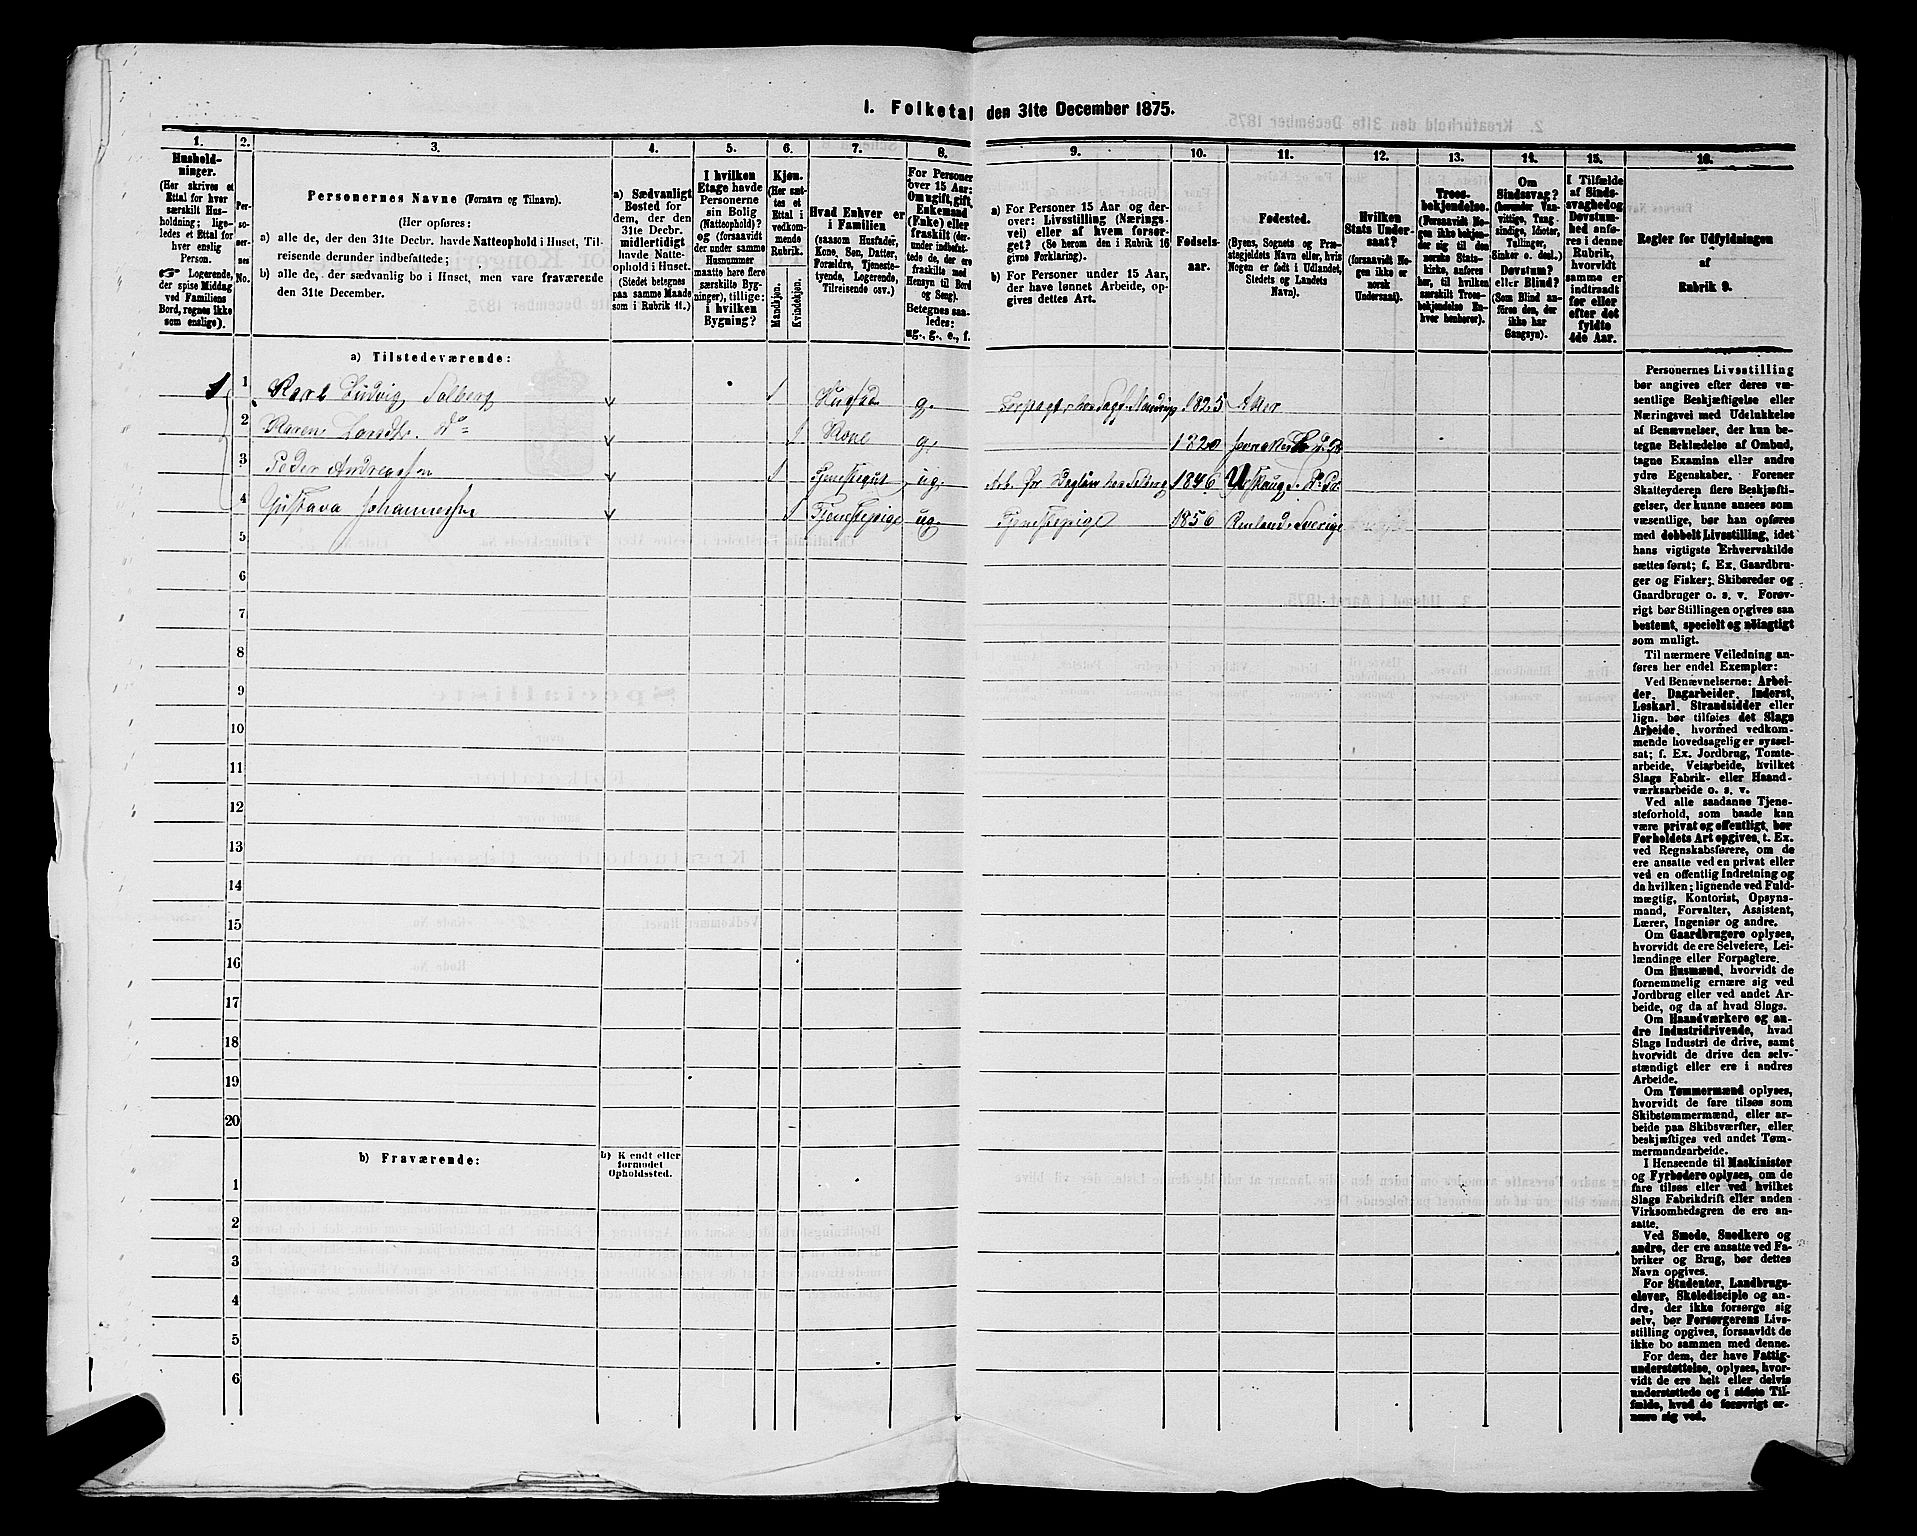 1. Folketal den 31te December 1875.
1.
Hushold-
ninger.
(Her skrives et
Ettal for hver
særskilt Hus-
holdning; lige-
ledes et Ettal for
hver enslig
Person.
☞ Logerende,
der spise Middag
ved Familiens
Bord, regnes ikke
som enslige).
2.
Per-
so-
ner-
nes
No.
3.
Personernes Navne (Fornavn og Tilnavn).
(Her opføres:
a) alle de, der den 31te Decbr. havde Natteophold i Huset, Til-
reisende derunder indbefattede;
b) alle de, der sædvanlig bo i Huset, men vare fraværende
den 31te December.
4.
a) Sædvanligt
Bosted for
dem, der den
31te Decbr.
midlertidigt
havde Natte-
ophold i Huset.
(Stedet betegnes
paa samme Maade
som i Rubrik 11.)
5.
I hvilken
Etage havde
Personerne
sin Bolig
(Natteophold)?
og (forsaavidt
der under samme
Husnummer
maatte høre flere
særskilte Byg-
ninger), tillige:
i hvilken
Bygning?
6.
Kjøn.
(Her sæt-
tes et
Ettal i
vedkom-
mende
Rubrik.
Mandkjøn.
Kvindekjøn.
7.
Hvad Enhver er
i Familien
(saasom Husfader,
Kone, Søn, Datter,
Forældre, Tjeneste-
tyende, Logerende,
Tilreisende osv.)
8.
For Personer
over 15 Aar:
Om ugift, gift,
Enkemand
(Enke) eller
fraskilt (der-
under indbefat-
tede de, der ere
fraskilte med
Hensyn til Bord
og Seng).
Betegnes saa-
ledes:
ug., g., e., f.
9.
a) For Personer 15 Aar og der-
over: Livsstilling (Nærings-
vei) eller af hvem forsør-
get? (Se herom den i Rubrik 16
givne Forklaring).
b) For Personer under 15 Aar,
der have lønnet Arbeide, op-
gives dettes Art.
10.
Fødsels-
aar.
11.
Fødested.
(Byens, Sognets og Præ-
stegjeldets Navn eller, hvis
Nogen er født i Udlandet,
Stedets og Landets
Navn).
12.
Hvilken
Stats Under-
saat?
(forsaavidt No-
gen ikke er
norsk
Undersaat).
13.
Troes-
bekjendelse.
(Forsaavidt No-
gen ikke bekjen-
der sig til den
norske Stats-
kirke, anføres
her, til hvilken
særskilt Troes-
bekjendelse En-
hver henhører).
14.
Om
Sindssvag?
(herunder Van-
vittige, Tung-
sindige, Idioter,
Tullinger,
Sinker o. desl.).
Døvstum?
eller Blind?
(Som Blind an-
føres den, der
ikke har
Gangsyn).
15.
I Tilfælde
af Sinds-
svaghed og
Døvstum-
hed anfø-
res i denne
Rubrik,
hvorvidt
samme er
indtraadt
før eller
efter det
fyldte
4de Aar.
16.
Regler for Udfyldningen
af
Rubrik 9.
a) Tilstedeværende:
1 1 Karl Ludvig Solberg 1 Husfad g. Forpagter 1825 Aker
2 Karen Larsdtr. Do 1 Kone g. 1820
3 Peder Andreassen 1 Tjenestegut ug. 1846
4 Gustava Johannessen 1 Tjenestepige ug. Tjenestepige 1856 Sverige
5
6
7
8
9
10
11
12
13
14
15
16
17
18
19
20
b) Fraværende:
b) Kjendt eller
formodet
Opholdssted.
1
2
3
4
5
6
Personernes Livsstilling
bør angives efter deres væ-
sentlige Beskjæftigelse eller
Næringsvei med Udelukkelse
af Benævnelser, der kun be-
tegne Beklædelse af Ombud,
tagne Examina eller andre
ydre Egenskaber. Forener
Skatteyderen flere Beskjæfti-
gelser, der kunne ansees som
væsentlige, bør han opføres
med dobbelt Livsstilling, idet
hans vigtigste Erhvervskilde
sættes først; f. Ex. Gaardbru-
ger og Fisker; Skibsreder og
Gaardbruger o. s. v. Forøv-
rigt bør Stillingen opgives saa
bestemt, specielt og nøiagtigt
som muligt.
Til nærmere Veiledning an-
føres her endel Exempler:
Ved Benævnelserne: Arbei-
der, Dagarbeider, Inderst,
Løskarl, Strandsidder eller
lign. bør tilføies det Slags
Arbeide, hvormed vedkom-
mende hovedsagelig er syssel-
sat; f. Ex. Jordbrug, Tomte-
arbeide, Veiarbeide, hvilket
Slags Fabrik- eller Haand-
værksarbeide o. s. v.
Ved alle saadanne Tjene-
steforhold, som baade kan
være privat og offentligt, bør
Forholdets Art opgives, t. Ex.
ved Regnskabsførere, om de
ere ansatte ved en privat eller
ved en offentlig Indretning og
da hvilken; lignende ved Fuld-
mægtig, Kontorist, Opsyns-
mand, Forvalter, Assistent,
Lærer, Ingeniør og andre.
Om Gaardbrugere oplyses,
hvorvidt de ere Selveiere, Lei-
lændinge eller Forpagtere.
Om Husmænd, hvorvidt de
fornemmelig ernære sig ved
Jordbrug eller ved andet Ar-
beide, og da af hvad Slags.
Om Haandværkere og an-
dre Industridrivende, hvad
Slags Industri de drive, samt
hvorvidt de drive den selv-
stændigt eller ere i andres
Arbeide.
Om Tømmermænd oplyses,
hvorvidt de fare tilsøs som
Skibstømmermænd, eller ar-
beide paa Skibsværfter, eller
beskjæftiges ved andet Tøm-
mermandsarbeide.
I Henseende til Maskinister
og Fyrbødere oplyses, om de
fare tilsøs eller ved hvilket
Slags Fabrikdrift eller anden
Virksomhedsgren de ere an-
satte.
Ved Smede, Snedkere og
andre, der ere ansatte ved Fa-
briker og Brug, bør dettes
Navn opgives.
For Studenter, Landbrugs-
elever, Skoledisciple og an-
dre, der ikke forsørge sig
selv, bør Forsørgerens Livs-
stilling opgives, forsaavidt de
ikke bo sammen med denne.
For dem, der have Fattig-
understøttelse, oplyses, hvor-
vidt de ere helt eller delvis
understøttede og i sidste Til-
fælde, hvad de forøvrigt er-
nære sig ved.